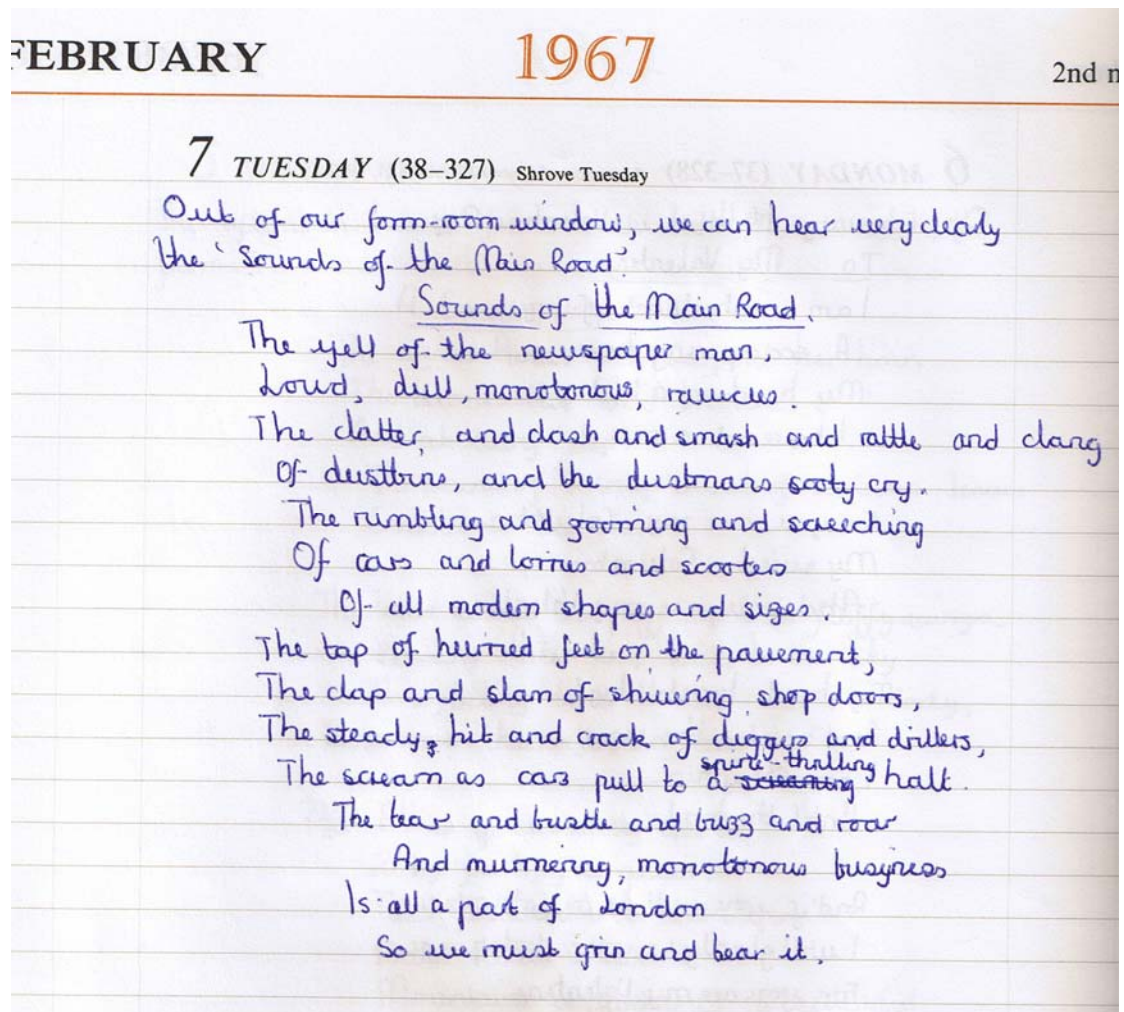 FEBRUARY 1967 2nd m
7 TUESDAY (38–327) Shrove Tuesday
Out of our form room window, we can hear very clearly
the 'Sounds of the Main Road'.
Sounds of the Main Road.
The yell of the newspaper man,
Loud, dull, monotonous, raucus.
The clatter, and clash and smash and rattle and clang
Of dustbins, and the dustmans sooty cry.
The rumbling and zooming and screeching
Of cars and lorries and scooters
Of all modern shapes and sizes.
The tap of hurried feet on the pavement,
The clap and slam of shuvving shop doors,
The steady, hit and crack of diggers and drillers,
The scream as cars pull to a screaming spine-thrilling halt.
The tear and bustle and buzz and roar
And murmering, monotonous busyness
Is all a part of London
So we must grin and bear it.